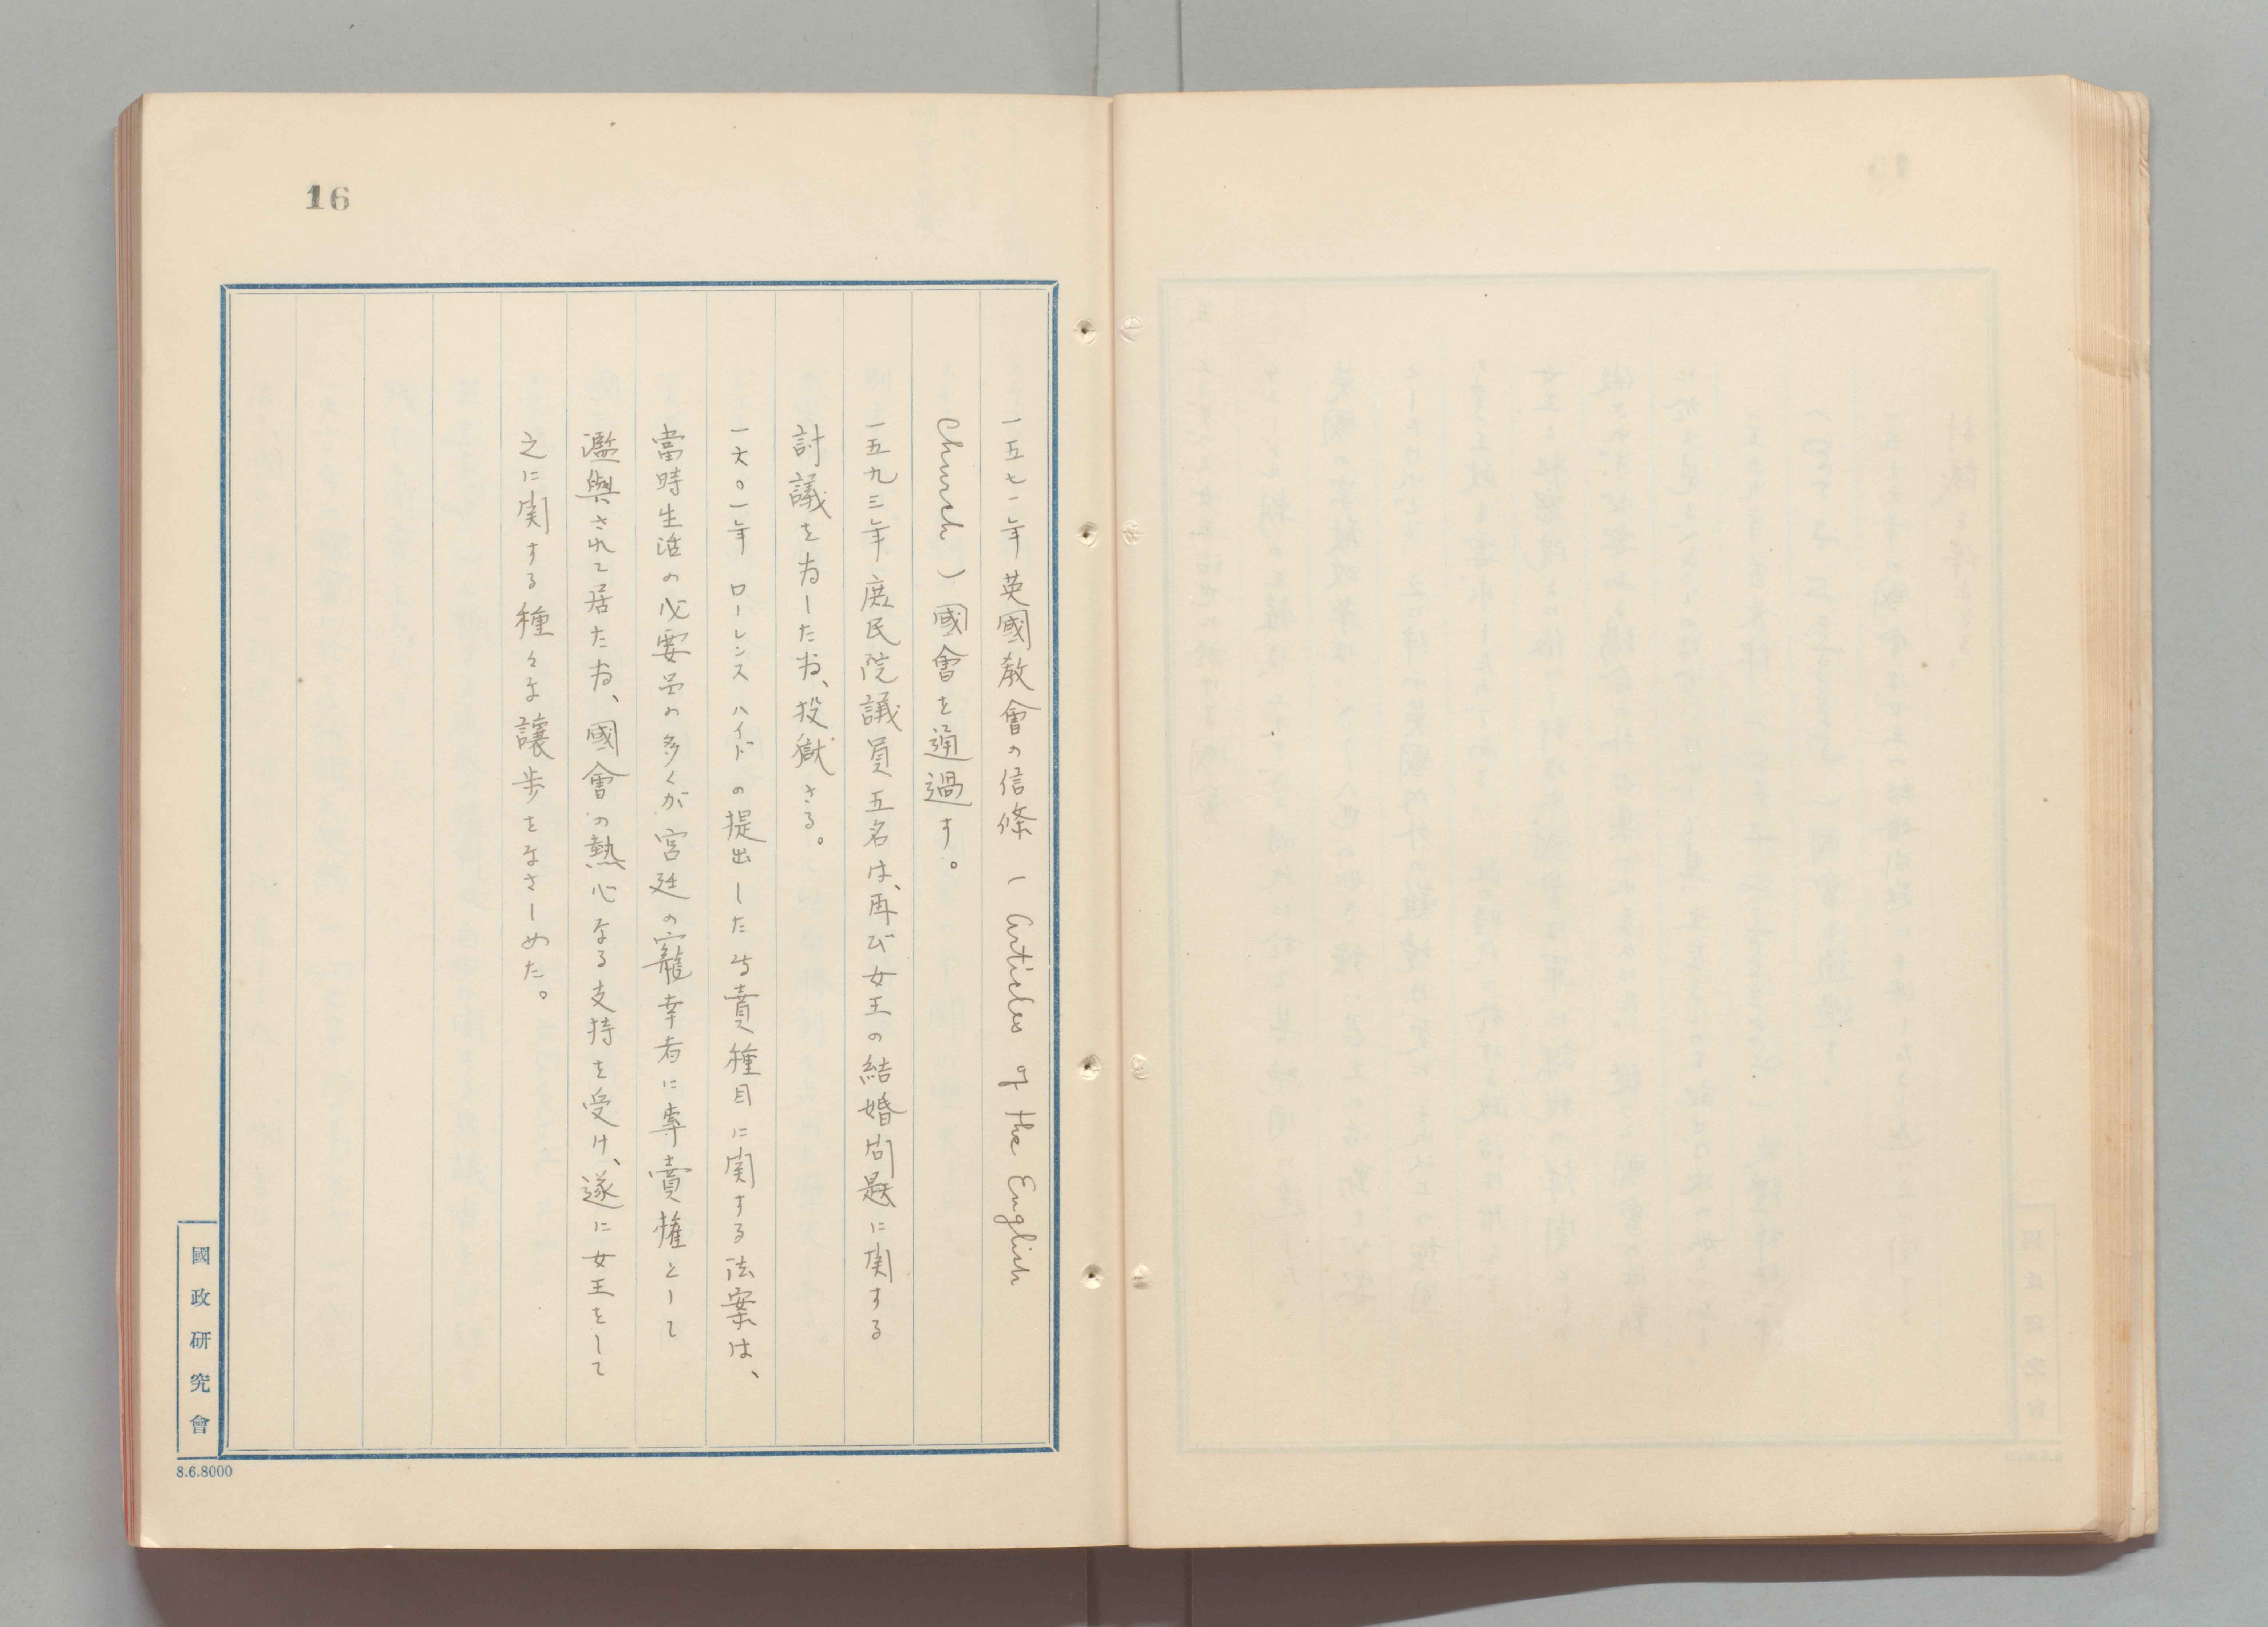 16
一五七一年英國教會の信條(Articles of the English
Church)國會を通過す。
一五九三年庶民院議員五名は、再び女王の結婚問題に関する
討議を為した為、投獄さる。
一六〇一年ローレンスハイドの提出した専賣種目に関する法案は、
當時生活の必要品の多くが宮廷の寵幸者に専賣権として
濫與されて居た為、國會の熱心なる支持を受け、遂に女王をして
之に関する種々な譲歩をなさしめた。
國政研究會
8.6.8000